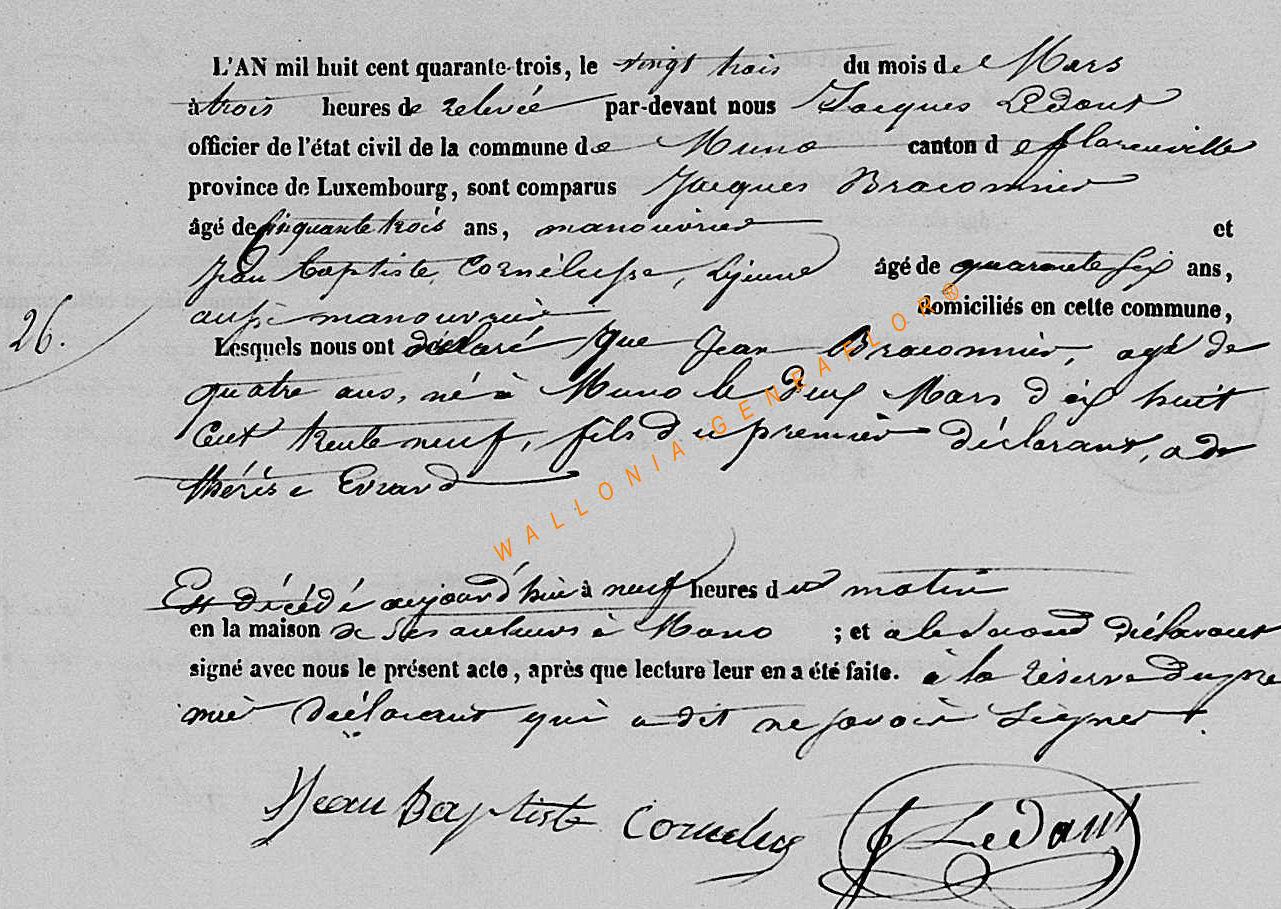 L'AN mil huit cent quarante-trois, le vingt trois du mois de Mars
à trois heures de relevée par-devant nous Jacques Ledant
officier de l'état civil de la commune de Muno canton de florenville
province de Luxembourg, sont comparus Jacques Braconnier
âgé de cinquante trois ans, manouvrier et
Jean baptiste Cornélusse, Lejeune âgé de quarante six ans,
aussi manouvrier domiciliés en cette commune,
26. Lesquels nous ont déclaré que Jean Braconnier, agé de
quatre ans, né à Muno le deux Mars dix huit
Cent trente neuf, fils du premier déclarant, a de
thérèse Evrard
WALLONIA-GENEAFLOR®
Est décédé aujourd'hui à neuf heures du matin
en la maison de ses auteurs à Muno ; et a le second déclarant
signé avec nous le présent acte, après que lecture leur en a été faite. à la réserve du pre
mier déclarant qui a dit ne savoir signer.
Jean Baptiste Cornelus J Ledant